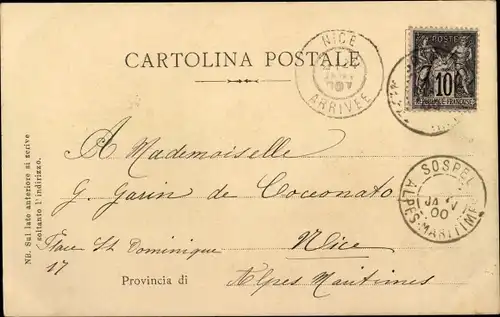 CARTOLINA POSTALE
NICE
ARRIVÉE
POSTE
10
RÉPUBLIQUE FRANÇAISE
A Mademoiselle
G. Garin de Cocconato
Place St Dominique
17
Nice
Provincia di Alpes Maritimes
SOSPEL
JA
00
ALPES-MARITIMES
NB. Sul lato anteriore si scrive
soltanto l'indirizzo.